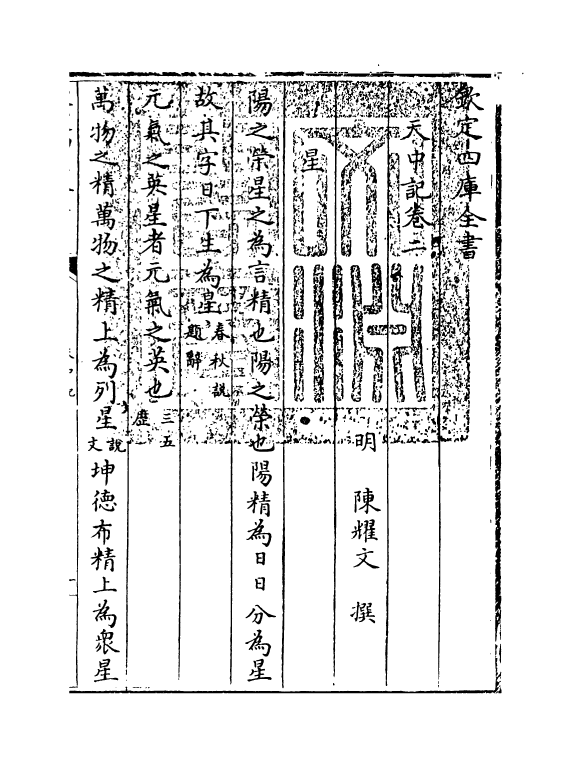 欽定四庫全書
天中記卷二
明 陳耀文 撰
星
陽之榮星之為言精也陽之榮也陽精為日日分為星
故其字日下生為星春秋說題辭
元氣之英星者元氣之英也三五歴
萬物之精萬物之精上為列星說文坤德布精上為衆星